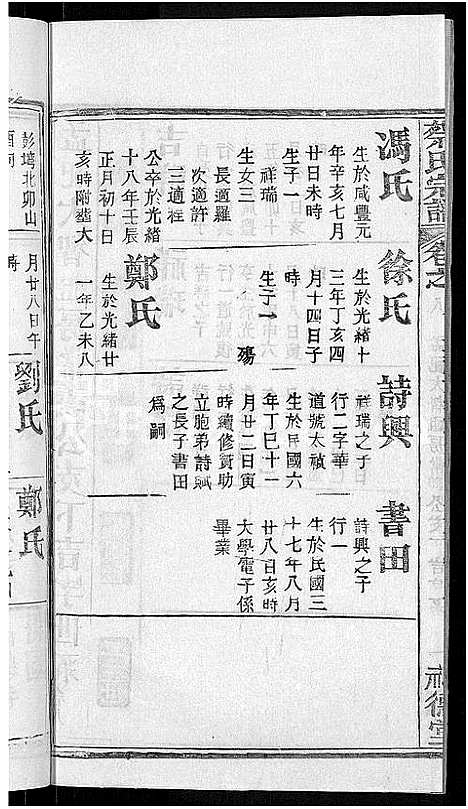 蔡氏宗譜
卷之
馮氏
生於咸豐元
年辛亥七月
廿日未時
生子一
祥瑞
生女三
長適羅
次適許
三適程
公卒於光緒
十八年壬辰
正月初十日
亥時附葬大
徐氏
生於光緒十
三年丁亥四
月十四日子
時
生子一 殤
鄭氏
生於光緒廿
一年乙未八
詩興
祥瑞之子
行二字華
道號太禎
生於民國六
年丁巳十一
月廿二日寅
時續修贊助
立胞弟詩賦
之長子書田
為嗣
書田
詩興之子
行一
生於民國三
十七年八月
廿八日亥時
大學電子係
畢業
彭墩北卯山
月廿八日午
時
劉氏
鄭氏